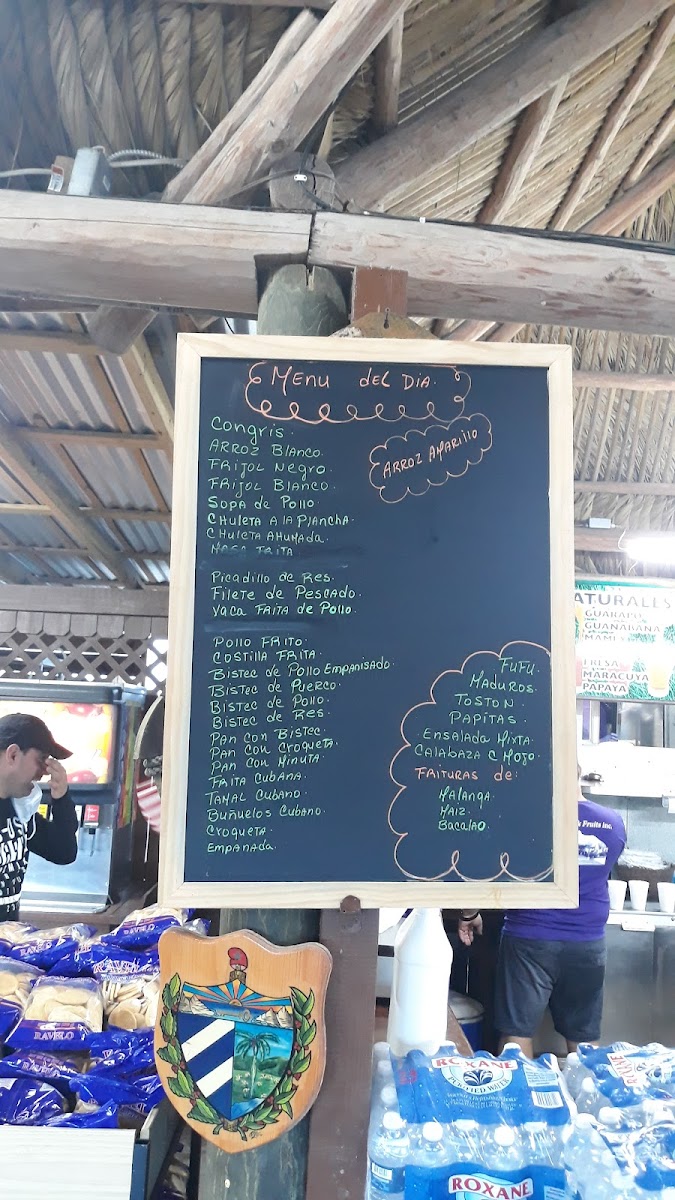 Menu del Dia.
Congris.
ARROZ BLANCO.
FRIJOL NEGRO.
FRIJOL BLANCO.
SOPA de Pollo.
CHULETA A LA PLANCHA.
CHULETA AHUMADA.
MASA FRITA
Picadillo de Res.
Filete de Pescado.
VACA FRITA de Pollo.
Pollo FRITO.
COSTILLA FRITA.
Bistec de Pollo Empanisado.
Bistec de Puerco.
Bistec de Pollo.
Bistec de Res.
PAN CON BISTEC.
PAN CON CROQUETA.
PAN CON MINUTA.
FRITA CUBANA.
TAMAL CUBANO.
BUÑUELOS CUBANO.
CROQUETA.
EMPANADA.
ARROZ AMARILLO
FUFU.
MADUROS.
TOSTON.
PAPITAS.
ENSALADA MIXTA.
CALABAZA C MOJO.
FRITURAS de:
MALANGA.
MAIZ.
BACALAO.
ATURALES
GUARAPO
GUANABANA
MAMEY
FRESA
MARACUYA
PAPAYA
Fruits Inc.
RAVELO
RAVELO
ROXANE
ROXANE